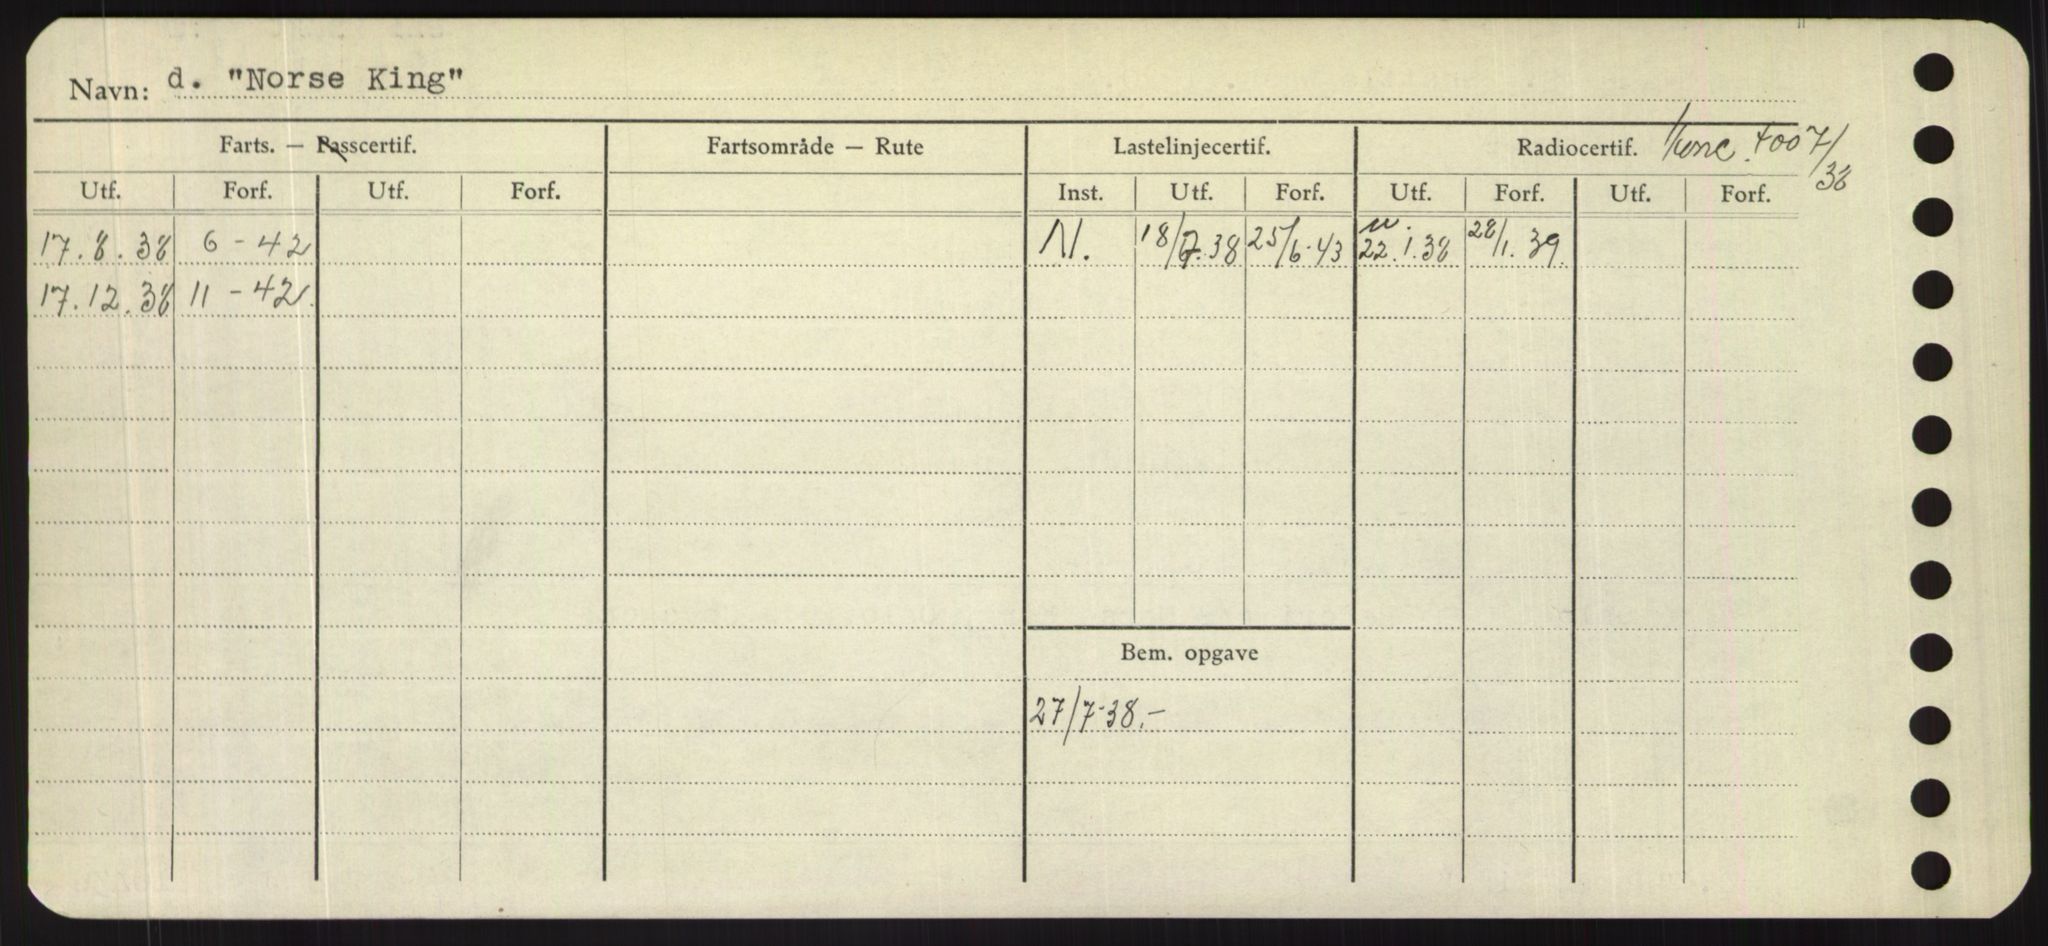 Navn: d. "Norse King"
Farts. — Passcertif. Fartsområde — Rute Lastelinjecertif. Radiocertif. konc. 4007/38
Utf. Forf. Utf. Forf. Inst. Utf. Forf. Utf. Forf. Utf. Forf.
17.8.38 6-42 N. 18/7.38 25/6-43 22.1.38 28/1.39
17.12.38 11-42
Bem. opgave
27/7-38.-